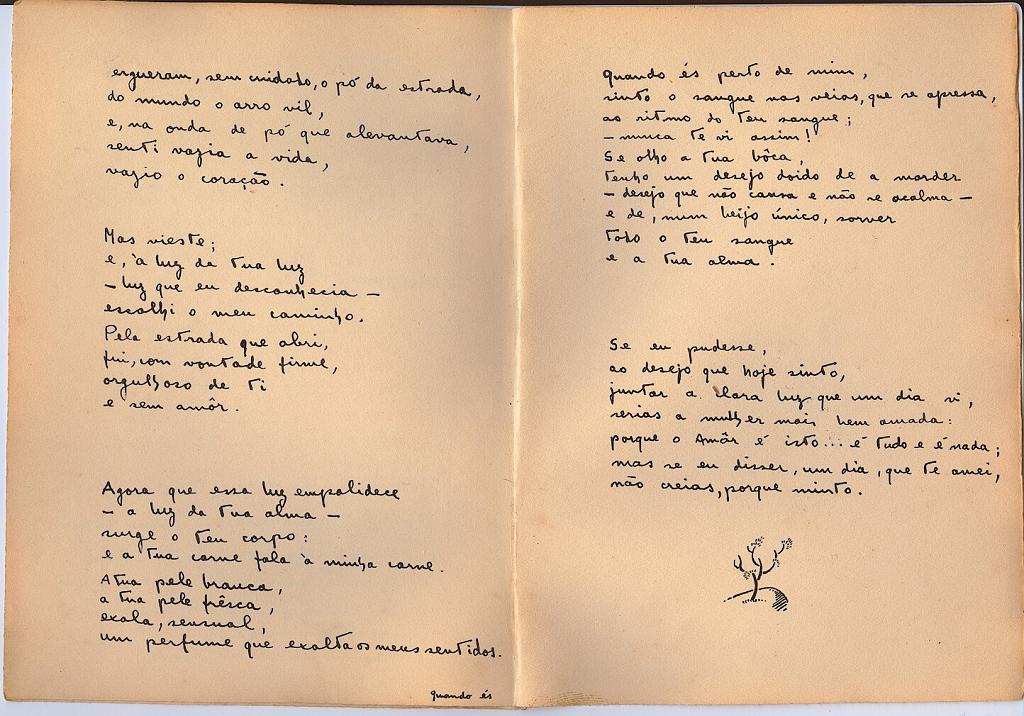 ergueram, sem cuidado, o pó da estrada,
do mundo o arro vil,
e, na onda de pó que alevantava,
senti vazia a vida,
vazio o coração.
Mas vieste;
e, à luz da tua luz
– luz que eu desconhecia –
escolhi o meu caminho.
Pela estrada que abri,
fui, com vontade firme,
orgulhoso de ti
e sem amôr.
Agora que essa luz empalidece
– a luz da tua alma –
surge o teu corpo:
e a tua carne fala à minha carne.
A tua pele branca,
a tua pele frêsca,
exala, sensual,
um perfume que exalta os meus sentidos.
quando és
Quando és perto de mim,
sinto o sangue nas veias, que se apressa,
ao ritmo do teu sangue;
– nunca te vi assim!
Se olho a tua bôca,
tenho um desejo doido de a morder
– desejo que não cansa e não se acalma –
e de, num beijo único, sorver
todo o teu sangue
e a tua alma.
Se eu pudesse,
ao desejo que hoje sinto,
juntar a clara luz que um dia vi,
serias a mulher mais bem amada:
porque o Amôr é isto... é tudo e é nada;
mas se eu disser, um dia, que te amei,
não creias, porque minto.